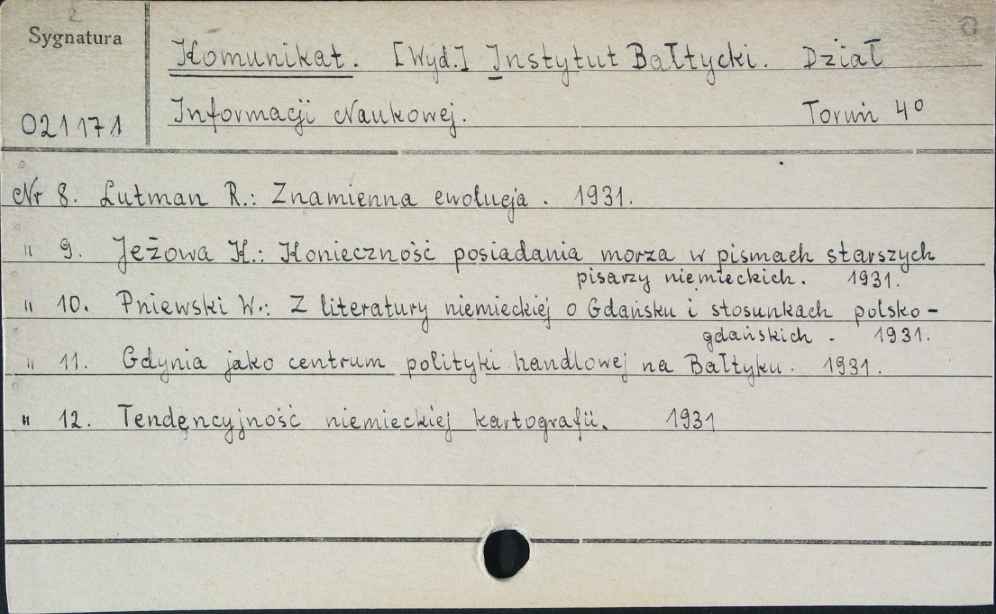 2
Sygnatura
Komunikat. [Wyd.] Instytut Bałtycki. Dział
021171
Informacji Naukowej. Toruń 4°
Nr 8. Lutman R.: Znamienna ewolucja. 1931.
" 9. Jeżowa K.: Konieczność posiadania morza w pismach starszych
pisarzy niemieckich. 1931.
" 10. Pniewski W.: Z literatury niemieckiej o Gdańsku i stosunkach polsko-
gdańskich. 1931.
" 11. Gdynia jako centrum polityki handlowej na Bałtyku. 1931.
" 12. Tendencyjność niemieckiej kartografii. 1931